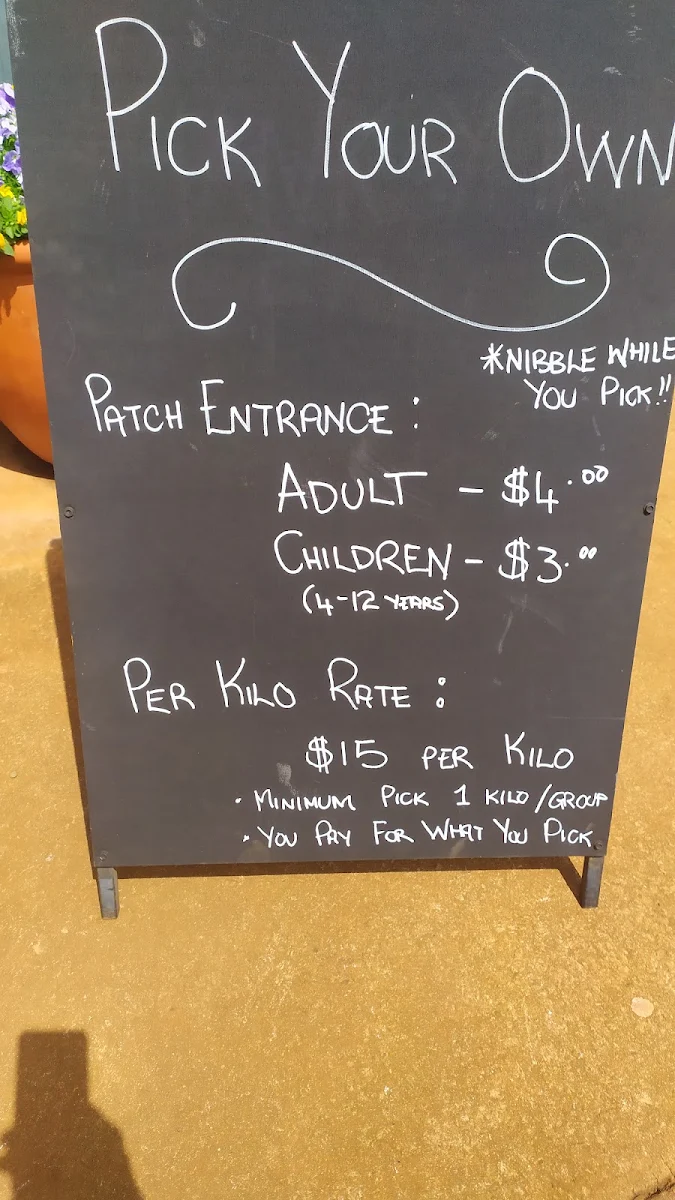 PICK YOUR OWN
*NIBBLE WHILE
YOU PICK!!
PATCH ENTRANCE :
ADULT - $4.00
CHILDREN - $3.00
(4-12 YEARS)
PER KILO RATE :
$15 PER KILO
· MINIMUM PICK 1 KILO/GROUP
· YOU PAY FOR WHAT YOU PICK.